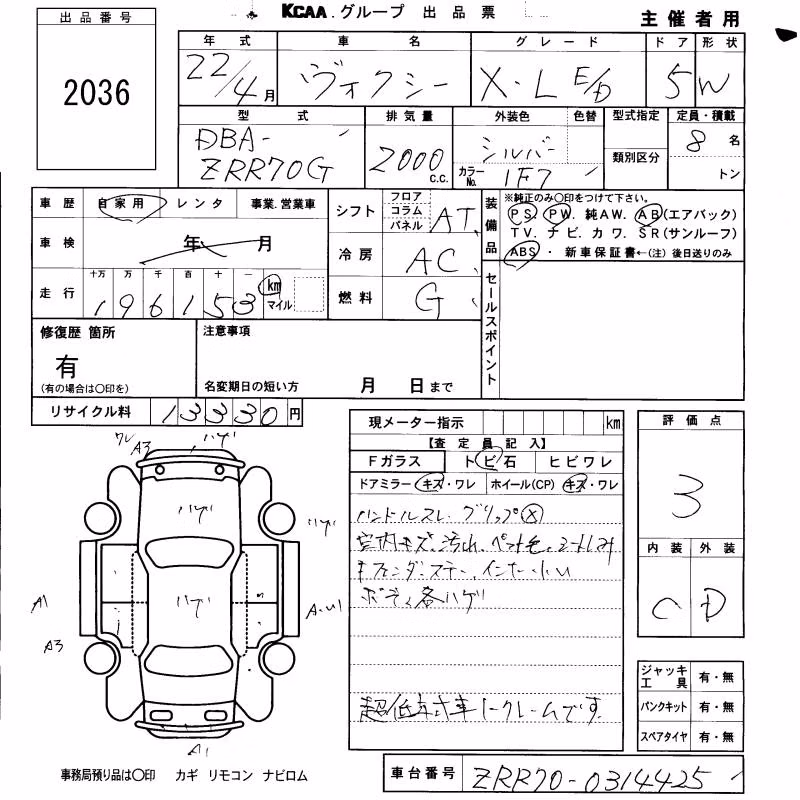 KCAA.グループ 出品票
主催者用
出品番号
2036
年式 車名 グレード ドア 形状
22/4月 ヴォクシー X・L E/D 5 W
型式 排気量 外装色 色替 型式指定 定員・積載
DBA-
ZRR70G 2000c.c. シルバー 類別区分 8名
カラーNo. 1F7 トン
車歴 自家用 レンタ 事業.営業車
車検 年 月
走行 十万 万 千 百 十 一 km
196153 マイル
シフト フロア コラム パネル AT
冷房 AC
燃料 G
装備品 ※純正のみ〇印をつけて下さい。
PS PW. 純AW. AB(エアバック)
TV. ナビ. カワ. SR(サンルーフ)
ABS ・ 新車保証書←(注)後日送りのみ
セールスポイント
修復歴 箇所
有
(有の場合は〇印を)
注意事項
名変期日の短い方 月 日まで
リサイクル料 13330円
現メーター指示 km
【査定員記入】
Fガラス トビ石 ヒビワレ
ドアミラー キズ・ワレ ホイール(CP) キズ・ワレ
ハンドルスレ. グリップ
室内キズ、汚れ、
ボディ各ハゲ
超低年式車ノークレームです
評価点
3
内装 外装
C D
ワレ A3 ハゲ
ハゲ
ハゲ
ハゲ
A1
A3
A1
ジャッキ工具 有・無
パンクキット 有・無
スペアタイヤ 有・無
事務局預り品は〇印 カギ リモコン ナビロム
車台番号 ZRR70-0314425